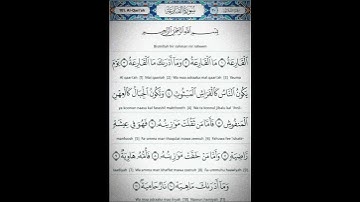 101. Al-Qari'ah
سورة القارعة
بسم الله الرحمن الرحيم
Bismillah hir rahman nir raheem
ٱلْقَارِعَةُ ١ مَا ٱلْقَارِعَةُ ٢ وَمَآ أَدْرَىٰكَ مَا ٱلْقَارِعَةُ ٣ يَوْمَ
Al qaari'ah [1] Mal qaariah [2] Wa maa adraaka mal qaari'ah [3] Yauma
يَكُونُ ٱلنَّاسُ كَٱلْفَرَاشِ ٱلْمَبْثُوثِ ٤ وَتَكُونُ ٱلْجِبَالُ كَٱلْعِهْنِ
ya koonun naasu kal farashil mabthooth [4] Wa ta koonul jibalu kal 'ihnil
ٱلْمَنفُوشِ ٥ فَأَمَّا مَن ثَقُلَتْ مَوَٰزِينُهُۥ ٦ فَهُوَ فِى عِيشَةٍ
manfoosh [5] Fa amma man thaqulat mawa zeenuh [6] Fahuwa fee 'ishatir
رَّاضِيَةٍ ٧ وَأَمَّا مَنْ خَفَّتْ مَوَٰزِينُهُۥ ٨ فَأُمُّهُۥ هَاوِيَةٌ ٩
raadiyah [7] Wa amma man khaffat mawa zeenuh [8] Fa ummuhu haawiyah [9]
وَمَآ أَدْرَىٰكَ مَا هِيَهْ ١٠ نَارٌ حَامِيَةٌۢ ١١
Wa maa adraaka maa hiyah [10] Naarun hamiyah [11]